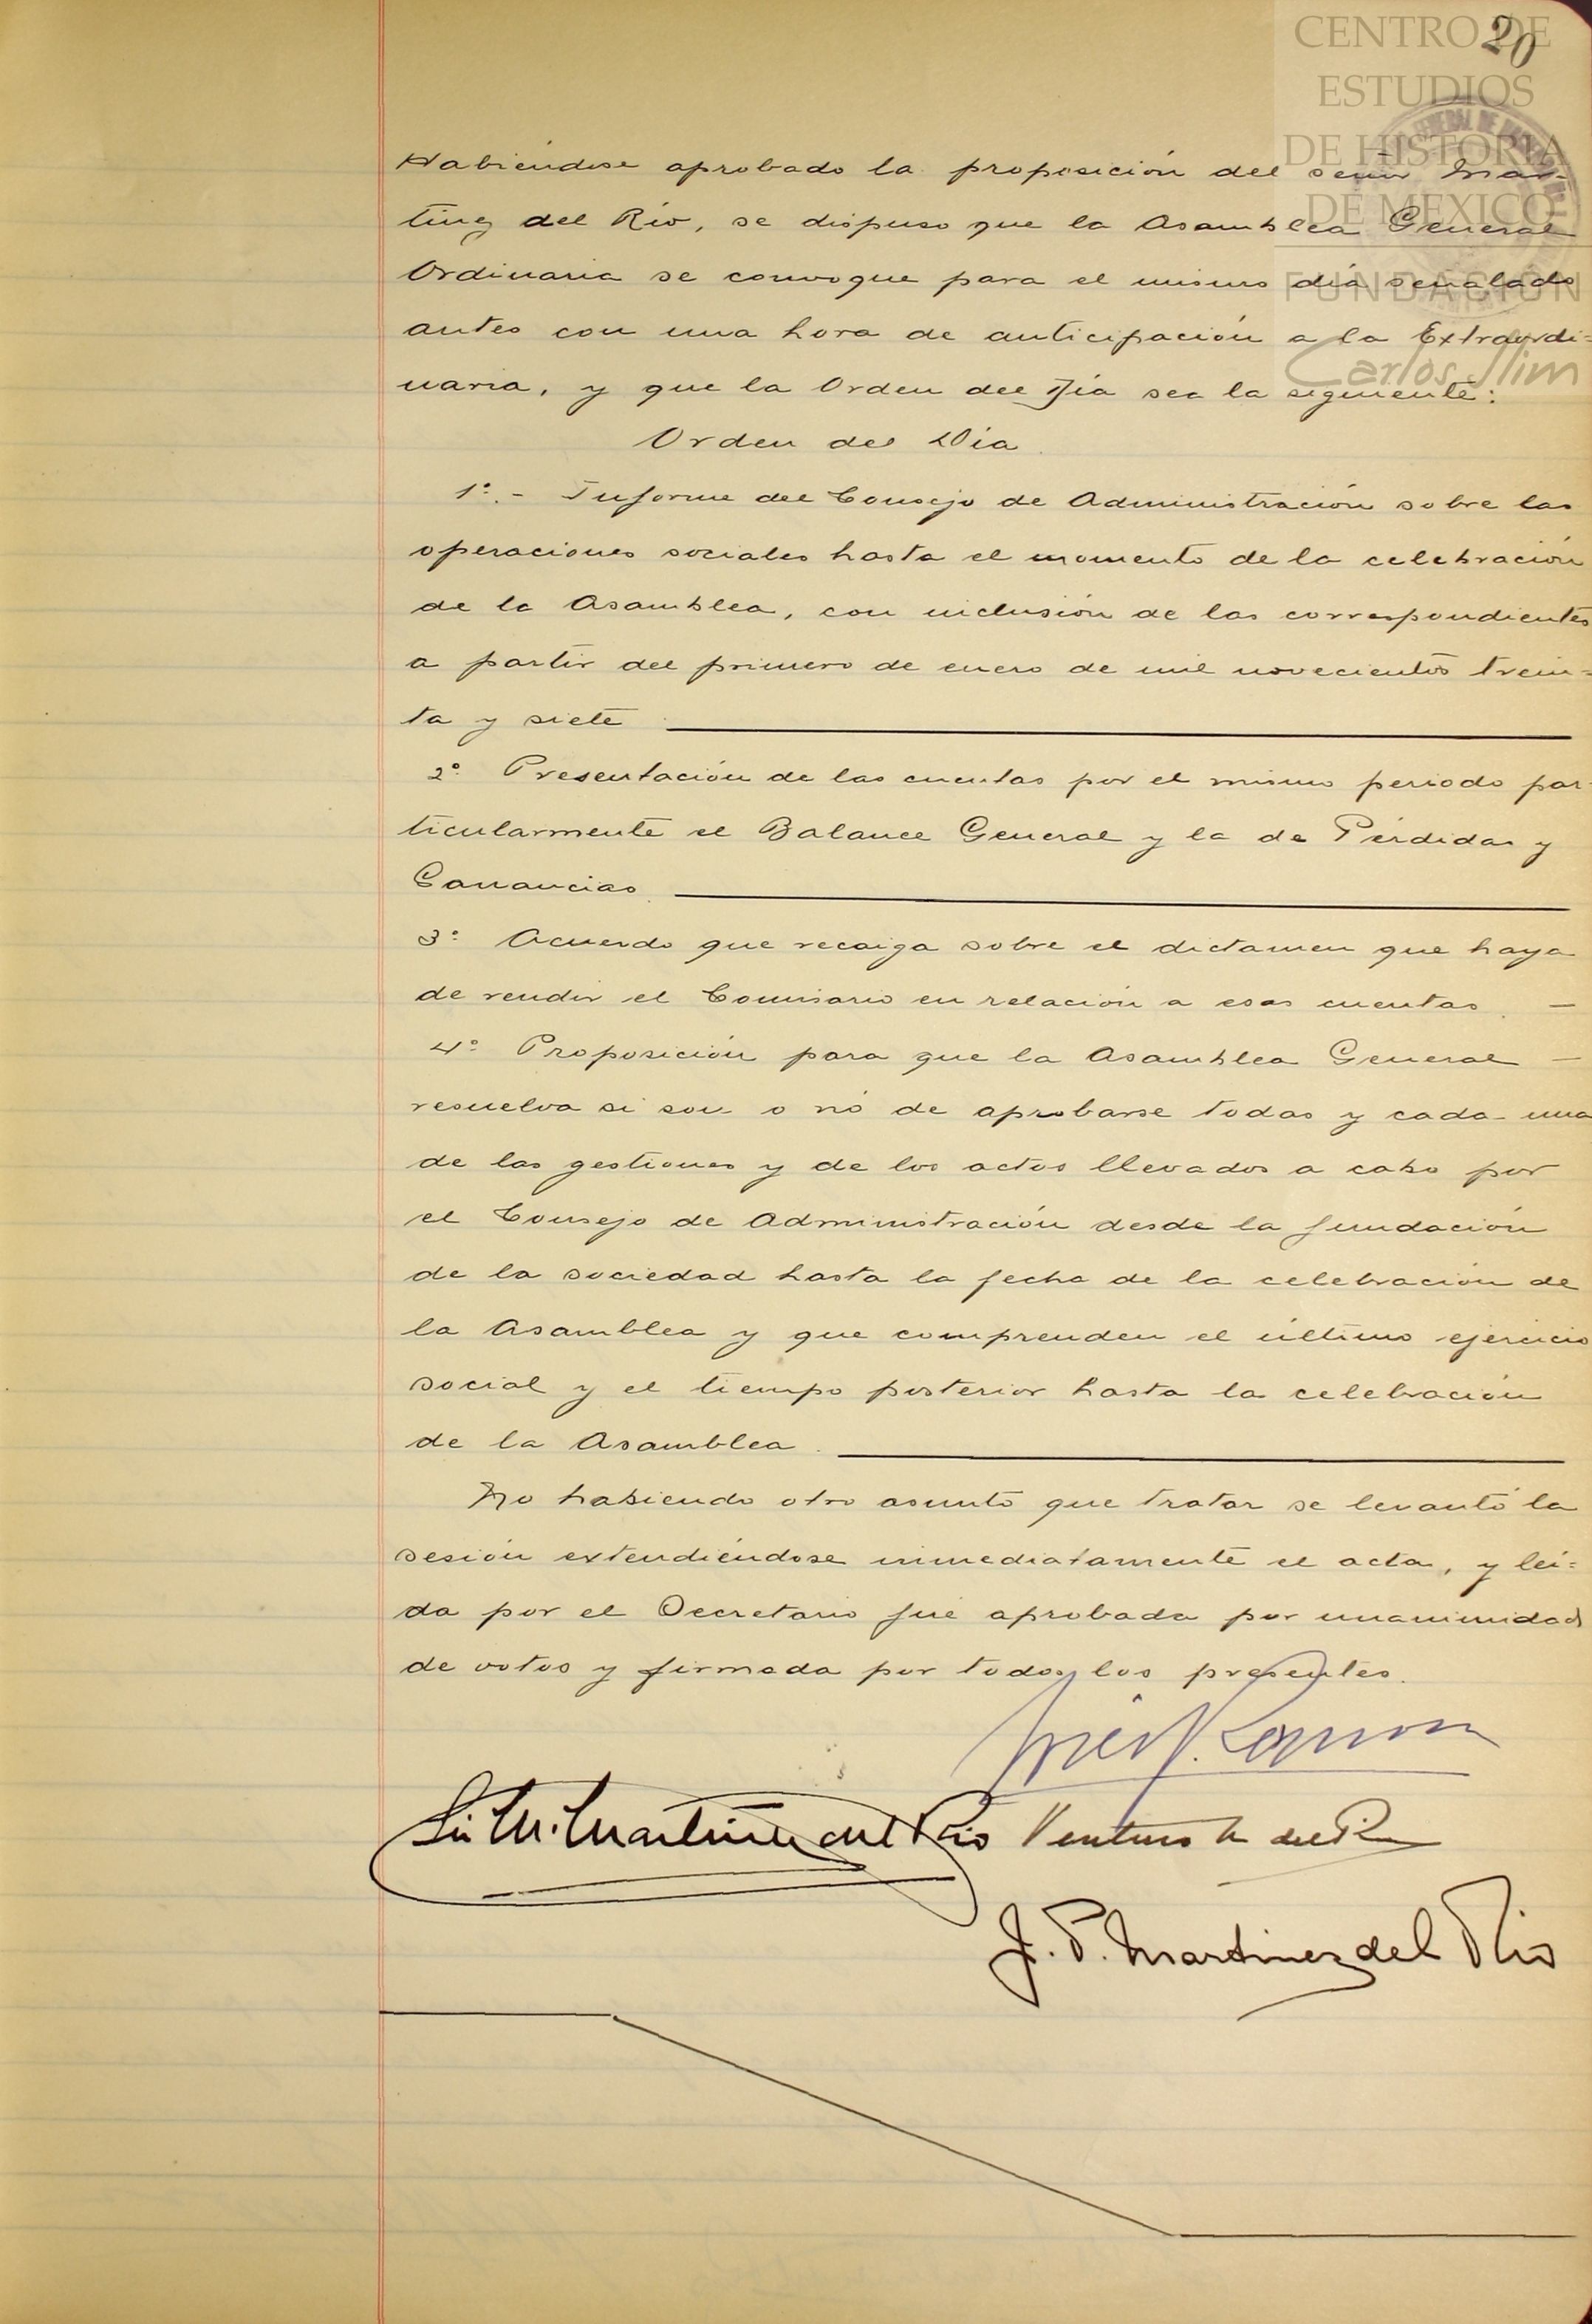 20
CENTRO DE
ESTUDIOS
DE HISTORIA
DE MEXICO
FUNDACIÓN
Carlos Slim
Habiéndose aprobado la proposición del señor Mar-
tinez del Río, se dispuso que la Asamblea General
Ordinaria se convoque para el mismo día señalado
antes con una hora de anticipación a la Extraordi=
naria, y que la Orden del Día sea la siguiente:
Orden del Día.
1º.- Informe del Consejo de Administración sobre las
operaciones sociales hasta el momento de la celebración
de la Asamblea, con inclusión de las correspondientes
a partir del primero de enero de mil novecientos trein=
ta y siete
2º Presentación de las cuentas por el mismo periodo par-
ticularmente el Balance General y la de Pérdidas y
Ganancias.
3º Acuerdo que recaiga sobre el dictamen que haya
de rendir el Comisario en relación a esas cuentas. —
4º Proposición para que la Asamblea General —
resuelva si son o nó de aprobarse todas y cada una
de las gestiones y de los actos llevados a cabo por
el Consejo de Administración desde la fundación
de la sociedad hasta la fecha de la celebración de
la Asamblea y que comprenden el último ejercicio
social y el tiempo posterior hasta la celebración
de la Asamblea.
No habiendo otro asunto que tratar se levantó la
sesión extendiéndose inmediatamente el acta, y lei=
da por el Secretario fué aprobada por unanimidad
de votos y firmada por todos los presentes.
Martínez del Rio Ventura M del Rio
J. P. Martinez del Rio